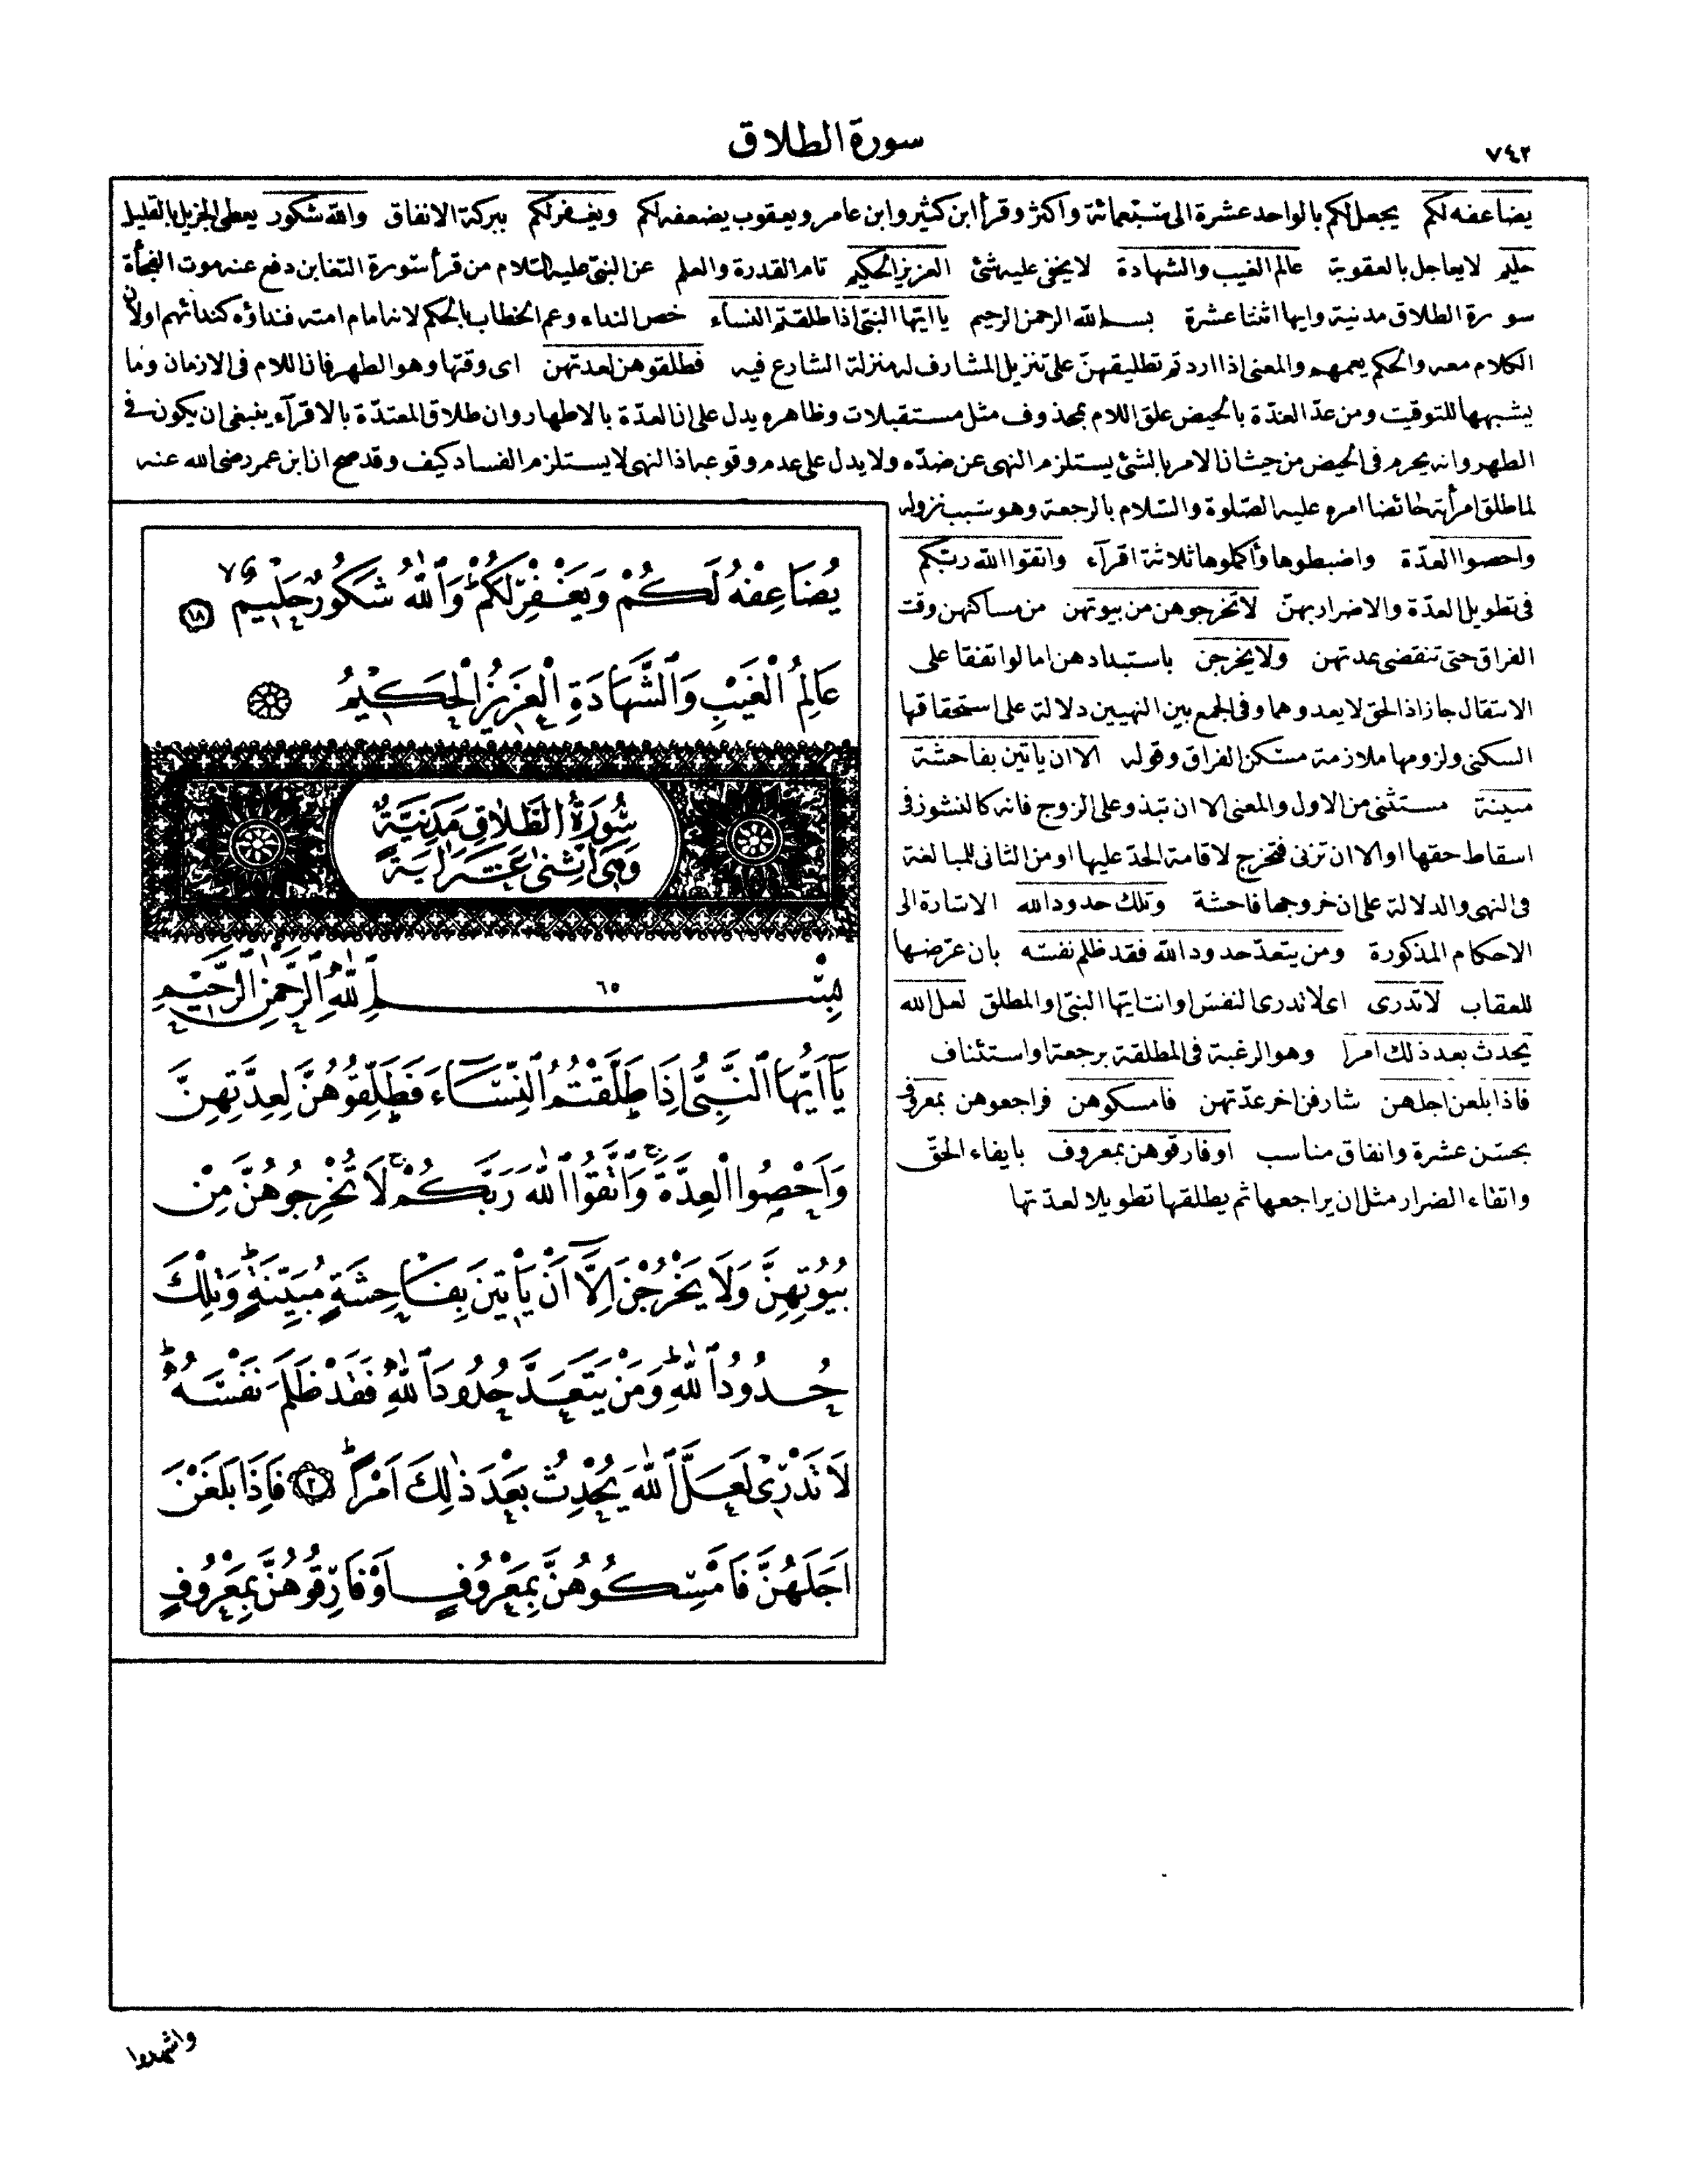 ٧٤٢
سورة الطلاق
يضاعفه لكم يجعل لكم بالواحد عشرة الى سبعمائة واكثر وقرأ ابن كثير وابن عامر ويعقوب يضعفه لكم ويغفر لكم ببركة الانفاق والله شكور يعطى الجزيل بالقليل
حليم لا يعاجل بالعقوبة عالم الغيب والشهادة لا يخفى عليه شئ العزيز الحكيم تام القدرة والعلم عن النبى عليه السلام من قرأ سورة التغابن دفع عنه موت الفجأة
سورة الطلاق مدنية وايها اثنتا عشرة بسم الله الرحمن الرحيم يا ايها النبى اذا طلقتم النساء خص النداء وعم الخطاب بالحكم لانه امام امته فنداؤه كندائهم اولان
الكلام معه والحكم يعمهم والمعنى اذا اردتم تطليقهن على تنزيل المشارف له منزلة الشارع فيه فطلقوهن لعدتهن اى وقتها وهو الطهر فان اللام فى الازمان وما
يشبهها للتوقيت ومن عد العدة بالحيض علق اللام بمحذوف مثل مستقبلات وظاهره يدل على ان العدة بالاطهار وان طلاق المعتدة بالاقرآء ينبغى ان يكون فى
الطهر وانه يحرم فى الحيض من حيث ان الامر بالشئ يستلزم النهى عن ضده ولا يدل على عدم وقوعه اذ النهى لا يستلزم الفساد كيف وقد صح ان ابن عمر رضى الله عنه
لما طلق امرأته حائضا امره عليه الصلوة والسلام بالرجعة وهو سبب نزوله
واحصوا العدة واضبطوها وأكملوها ثلاثة اقرآء واتقوا الله ربكم
فى تطويل العدة والاضرار بهن لا تخرجوهن من بيوتهن من مساكنهن وقت
الفراق حتى تنقضى عدتهن ولا يخرجن باستبدادهن اما لو اتفقا على
الانتقال جاز اذ الحق لا يعدوهما وفى الجمع بين النهيين دلالة على استحقاقها
السكنى ولزومها ملازمة مسكن الفراق وقوله الا ان ياتين بفاحشة
مبينة مستثنى من الاول والمعنى الا ان تبذو على الزوج فانه كالنشوز فى
اسقاط حقها او الا ان تزنى فتخرج لاقامة الحد عليها او من الثانى للمبالغة
فى النهى والدلالة على ان خروجها فاحشة وتلك حدود الله الاشارة الى
الاحكام المذكورة ومن يتعد حدود الله فقد ظلم نفسه بان عرضها
للعقاب لا تدرى اى لا تدرى النفس او انت ايها النبى او المطلق لعل الله
يحدث بعد ذلك امرا وهو الرغبة فى المطلقة برجعة او استئناف
فاذا بلغن اجلهن شارفن اخر عدتهن فامسكوهن فراجعوهن بمعروف
بحسن عشرة وانفاق مناسب او فارقوهن بمعروف بايفاء الحق
واتقاء الضرار مثل ان يراجعها ثم يطلقها تطويلا لعدتها
يُضَاعِفْهُ لَكُمْ وَيَغْفِرْ لَكُمْ وَاللّٰهُ شَكُورٌ حَلِيمٌ ١٨
عَالِمُ الْغَيْبِ وَالشَّهَادَةِ الْعَزِيزُ الْحَكِيمُ
سُورَةُ الطَّلَاقِ مَدَنِيَّةٌ
وَهِىَ اثْنَتَى عَشَرَ اٰيَةً
بِسْمِ اللّٰهِ الرَّحْمٰنِ الرَّحِيمِ ٦٥
يَآ اَيُّهَا النَّبِىُّ اِذَا طَلَّقْتُمُ النِّسَآءَ فَطَلِّقُوهُنَّ لِعِدَّتِهِنَّ
وَاَحْصُوا الْعِدَّةَ وَاتَّقُوا اللّٰهَ رَبَّكُمْ لَا تُخْرِجُوهُنَّ مِنْ
بُيُوتِهِنَّ وَلَا يَخْرُجْنَ اِلَّآ اَنْ يَأْتِينَ بِفَاحِشَةٍ مُبَيِّنَةٍ وَتِلْكَ
حُدُودُ اللّٰهِ وَمَنْ يَتَعَدَّ حُدُودَ اللّٰهِ فَقَدْ ظَلَمَ نَفْسَهُ
لَا تَدْرِى لَعَلَّ اللّٰهَ يُحْدِثُ بَعْدَ ذٰلِكَ اَمْرًا ٢ فَاِذَا بَلَغْنَ
اَجَلَهُنَّ فَاَمْسِكُوهُنَّ بِمَعْرُوفٍ اَوْ فَارِقُوهُنَّ بِمَعْرُوفٍ
واشهدوا